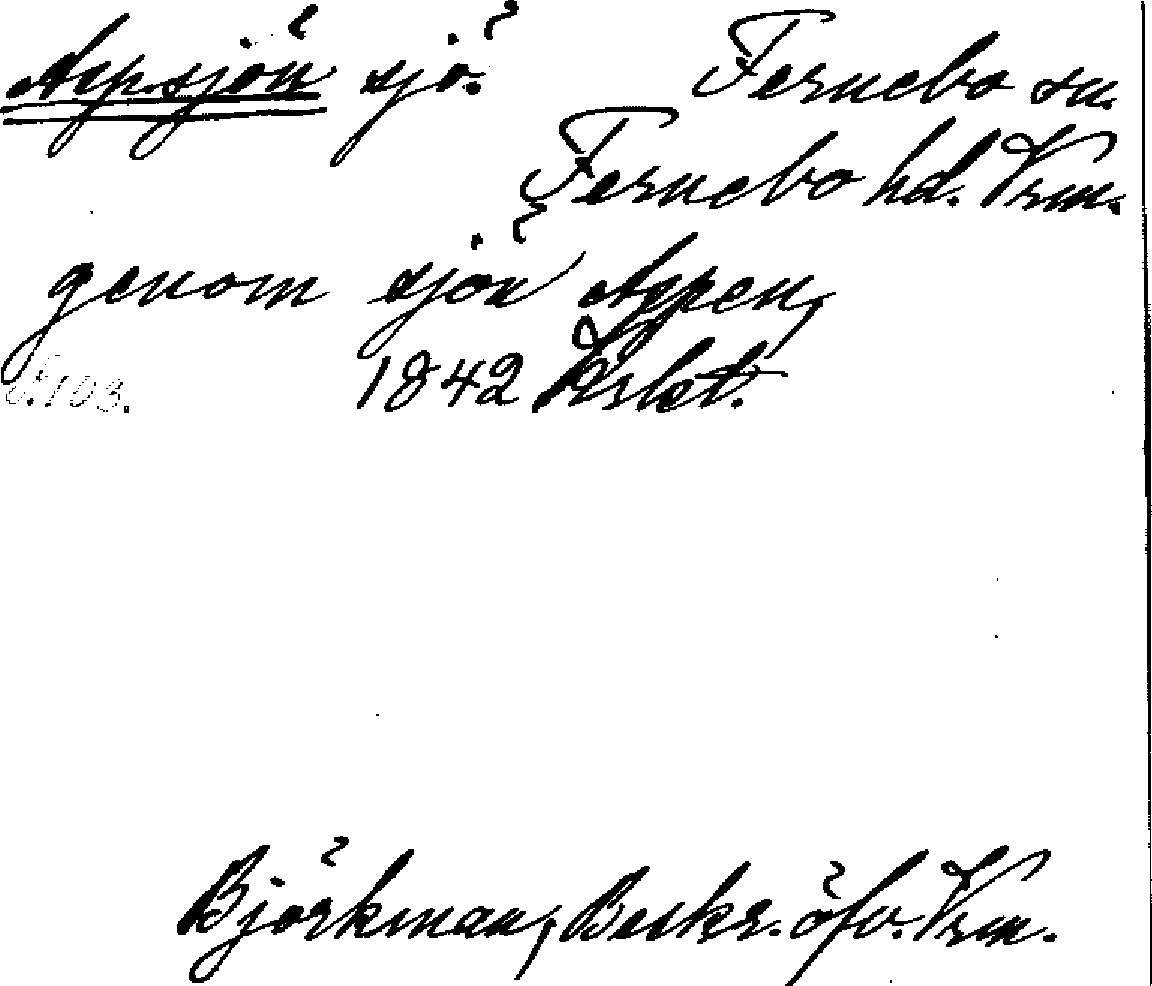 Aspsjön sjö. Fernebo sn.
Fernebo hd. Vrm.
genom sjön Aspen,
S. 103. 1842
Björkman, Beskr. öfv. Vrm.